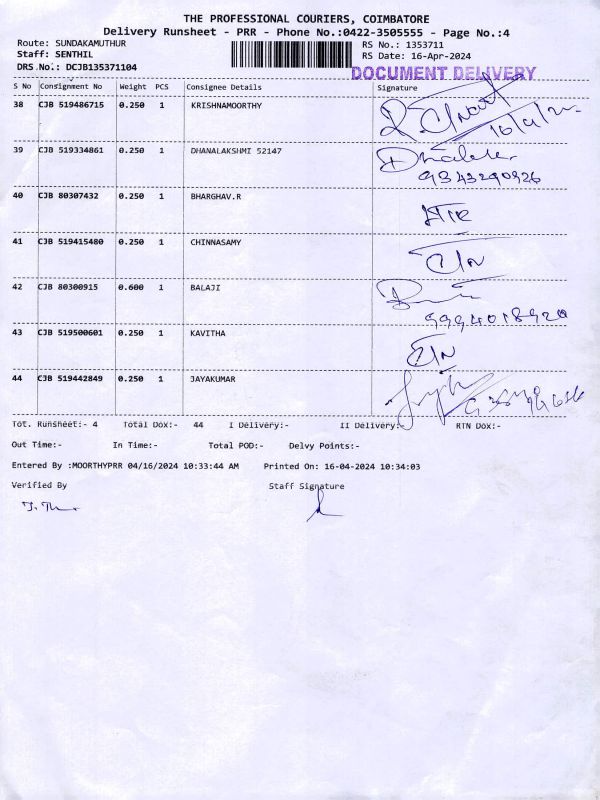 THE PROFESSIONAL COURIERS, COIMBATORE
Delivery Runsheet - PRR - Phone No.:0422-3505555 - Page No.:4
Route: SUNDAKAMUTHUR RS No.: 1353711
Staff: SENTHIL RS Date: 16-Apr-2024
DRS No.: DCJB135371104
DOCUMENT DELIVERY
S No Consignment No Weight PCS Consignee Details Signature
38 CJB 519486715 0.250 1 KRISHNAMOORTHY
39 CJB 519334861 0.250 1 DHANALAKSHMI 52147
9343290926
40 CJB 80307432 0.250 1 BHARGHAV.R
41 CJB 519415480 0.250 1 CHINNASAMY
42 CJB 80300915 0.600 1 BALAJI
9994018920
43 CJB 519500601 0.250 1 KAVITHA
44 CJB 519442849 0.250 1 JAYAKUMAR
Tot. Runsheet:- 4 Total Dox:- 44 I Delivery:- II Delivery:- RTN Dox:-
Out Time:- In Time:- Total POD:- Delvy Points:-
Entered By :MOORTHYPRR 04/16/2024 10:33:44 AM Printed On: 16-04-2024 10:34:03
Verified By Staff Signature